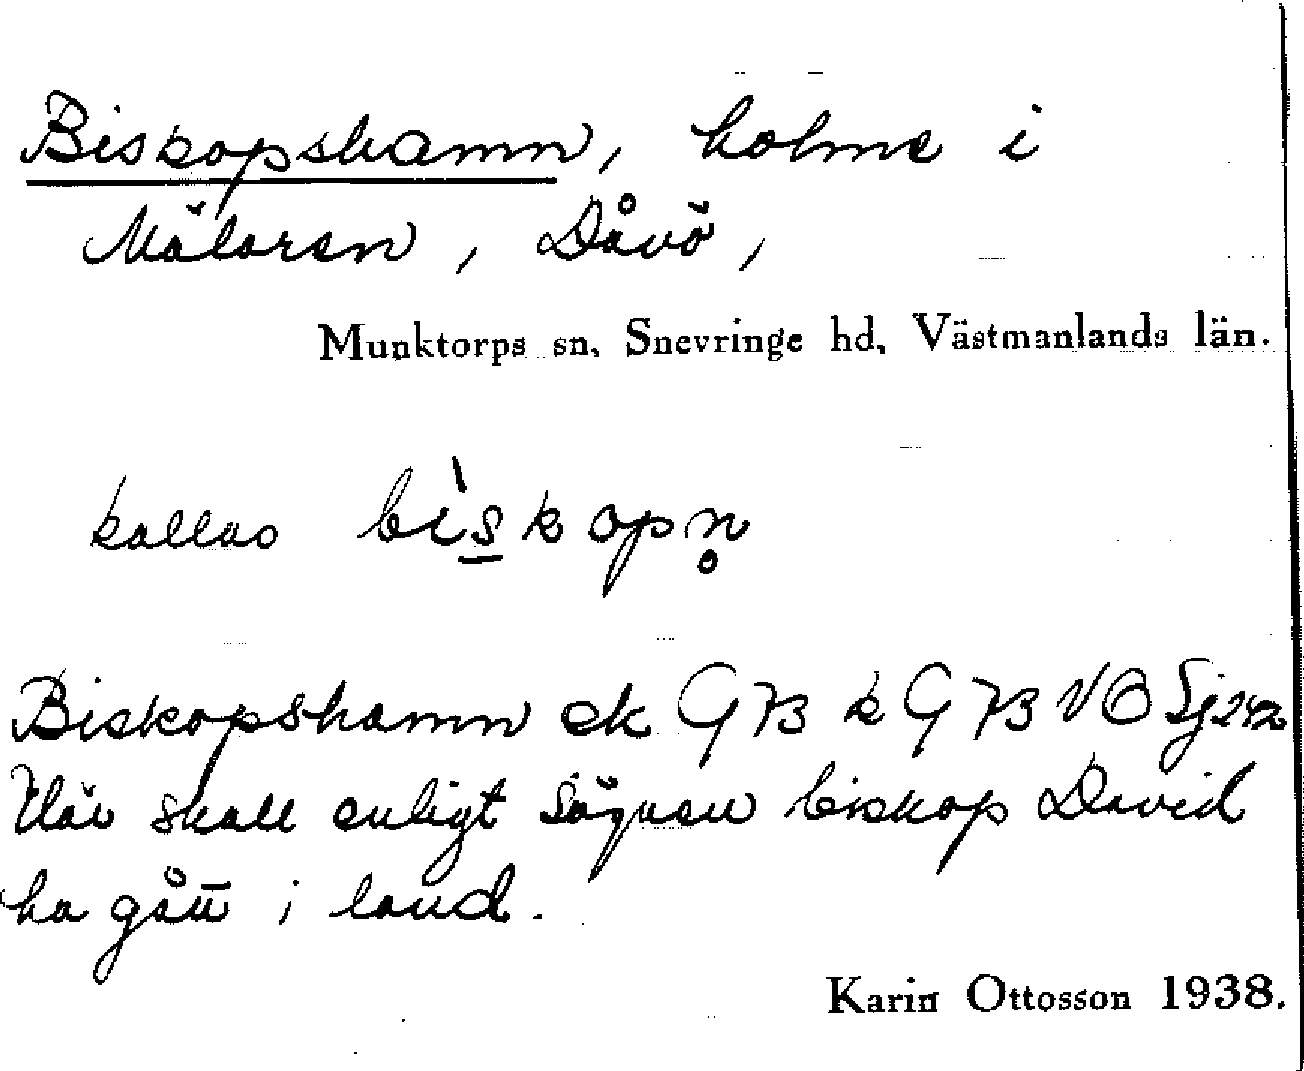 Biskopshamn, holme i
Mälaren, Dåvö,
Munktorps sn, Snevringe hd, Västmanlands län.
kallas bìs̲kopn̥
Biskopshamn ek G 73 k G 73 VO Sj 242
Här skall enligt sägnen biskop David
ha gått i land.
Karin Ottosson 1938.